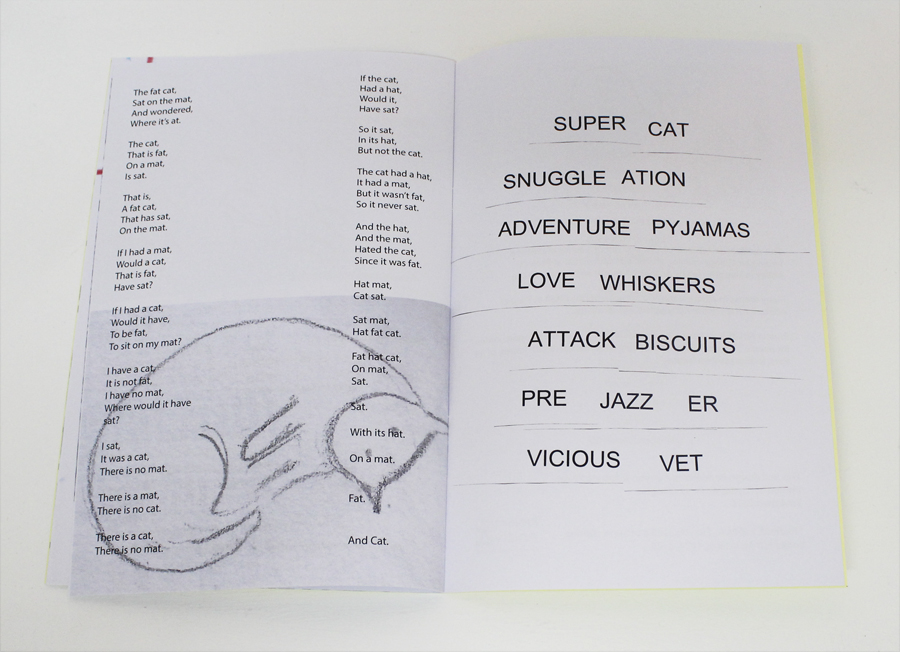 The fat cat,
Sat on the mat,
And wondered,
Where it's at.
The cat,
That is fat,
On a mat,
Is sat.
That is,
A fat cat,
That has sat,
On the mat.
If I had a mat,
Would a cat,
That is fat,
Have sat?
If I had a cat,
Would it have,
To be fat,
To sit on my mat?
I have a cat,
It is not fat,
I have no mat,
Where would it have
sat?
I sat,
It was a cat,
There is no mat.
There is a mat,
There is no cat.
There is a cat,
There is no mat.
If the cat,
Had a hat,
Would it,
Have sat?
So it sat,
In its hat,
But not the cat.
The cat had a hat,
It had a mat,
But it wasn't fat,
So it never sat.
And the hat,
And the mat,
Hated the cat,
Since it was fat.
Hat mat,
Cat sat.
Sat mat,
Hat fat cat.
Fat hat cat,
On mat,
Sat.
Sat.
With its hat.
On a mat.
Fat.
And Cat.
SUPER CAT
SNUGGLE ATION
ADVENTURE PYJAMAS
LOVE WHISKERS
ATTACK BISCUITS
PRE JAZZ ER
VICIOUS VET